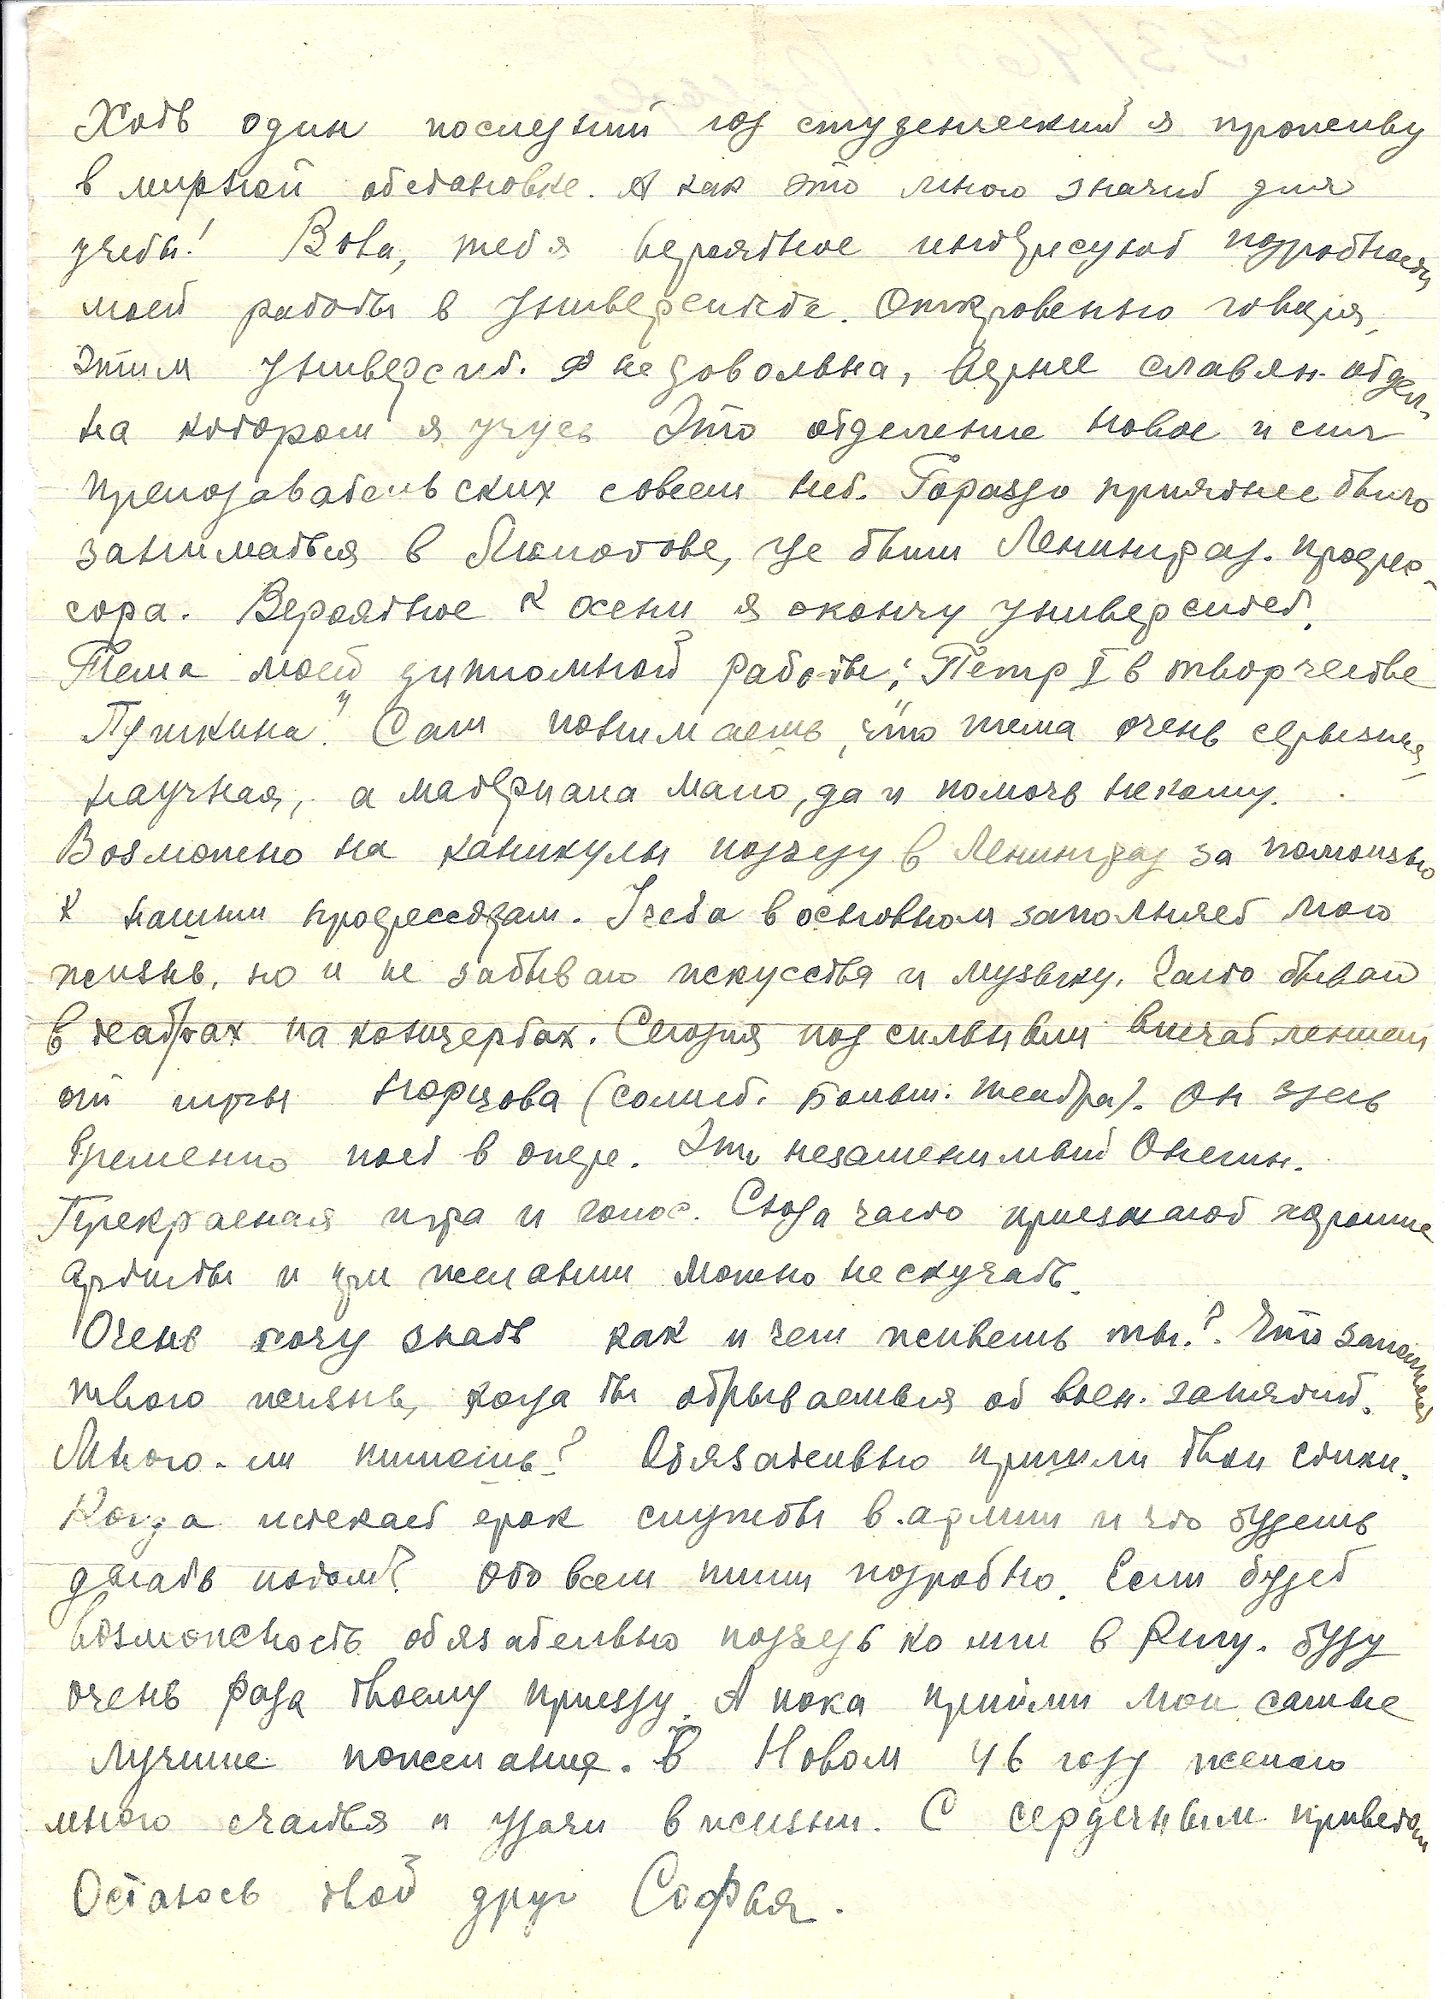 Хоть один последний год студенческий я проживу
в мирной обстановке. А как это много значит для
учебы! Вова, тебя вероятнее интересуют подробности
моей работы в университете. Откровенно говоря,
этим университ. я недовольна, вернее славян. отдел.
на котором я учусь Это отделение новое и сил
преподавательских совсем нет. Гораздо приятнее было
заниматься в Молотове, где были Ленинград. профес-
сора. Вероятнее к осени я окончу университет.
Тема моей дипломной работы: "Петр I в творчестве
Пушкина". Сам понимаешь, что тема очень серьезная,
научная, а материала мало, да и помочь некому.
Возможно на каникулы поеду в Ленинград за помощью
к нашим профессорам. Учеба в основном заполняет мою
жизнь, но и не забываю искусства и музыку. Часто бываю
в театрах на концертах. Сегодня под сильным впечатлением
от игры Норцова (солист. Больш. театра). Он здесь
временно поет в опере. Это незаменимый Онегин.
Прекрасная игра и голос. Сюда часто приезжают хорошие
артисты и при желании можно не скучать.
Очень хочу знать как и чем живешь ты?. Что заполняет
твою жизнь, когда ты отрываешься от воен. занятий.
Много-ли пишешь? Обязательно пришли твои стихи.
Когда истекает срок службы в армии и что будешь
делать потом? Обо всем пиши подробно. Если будет
возможность обязательно подъедь ко мне в Ригу. Буду
очень рада твоему приезду. А пока прийми мои самые
лучшие пожелания. В Новом 46 году желаю
много счастья и удачи в жизни. С сердечным приветом
Остаюсь твой друг Софья.